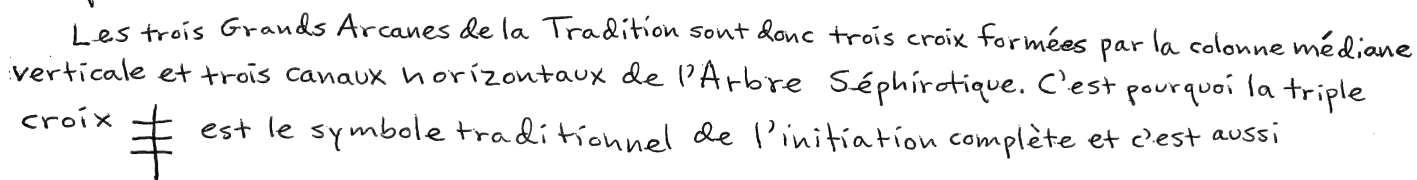 Les trois Grands Arcanes de la Tradition sont donc trois croix formées par la colonne médiane
verticale et trois canaux horizontaux de l'Arbre Séphirotique. C'est pourquoi la triple
croix est le symbole traditionnel de l'initiation complète et c'est aussi